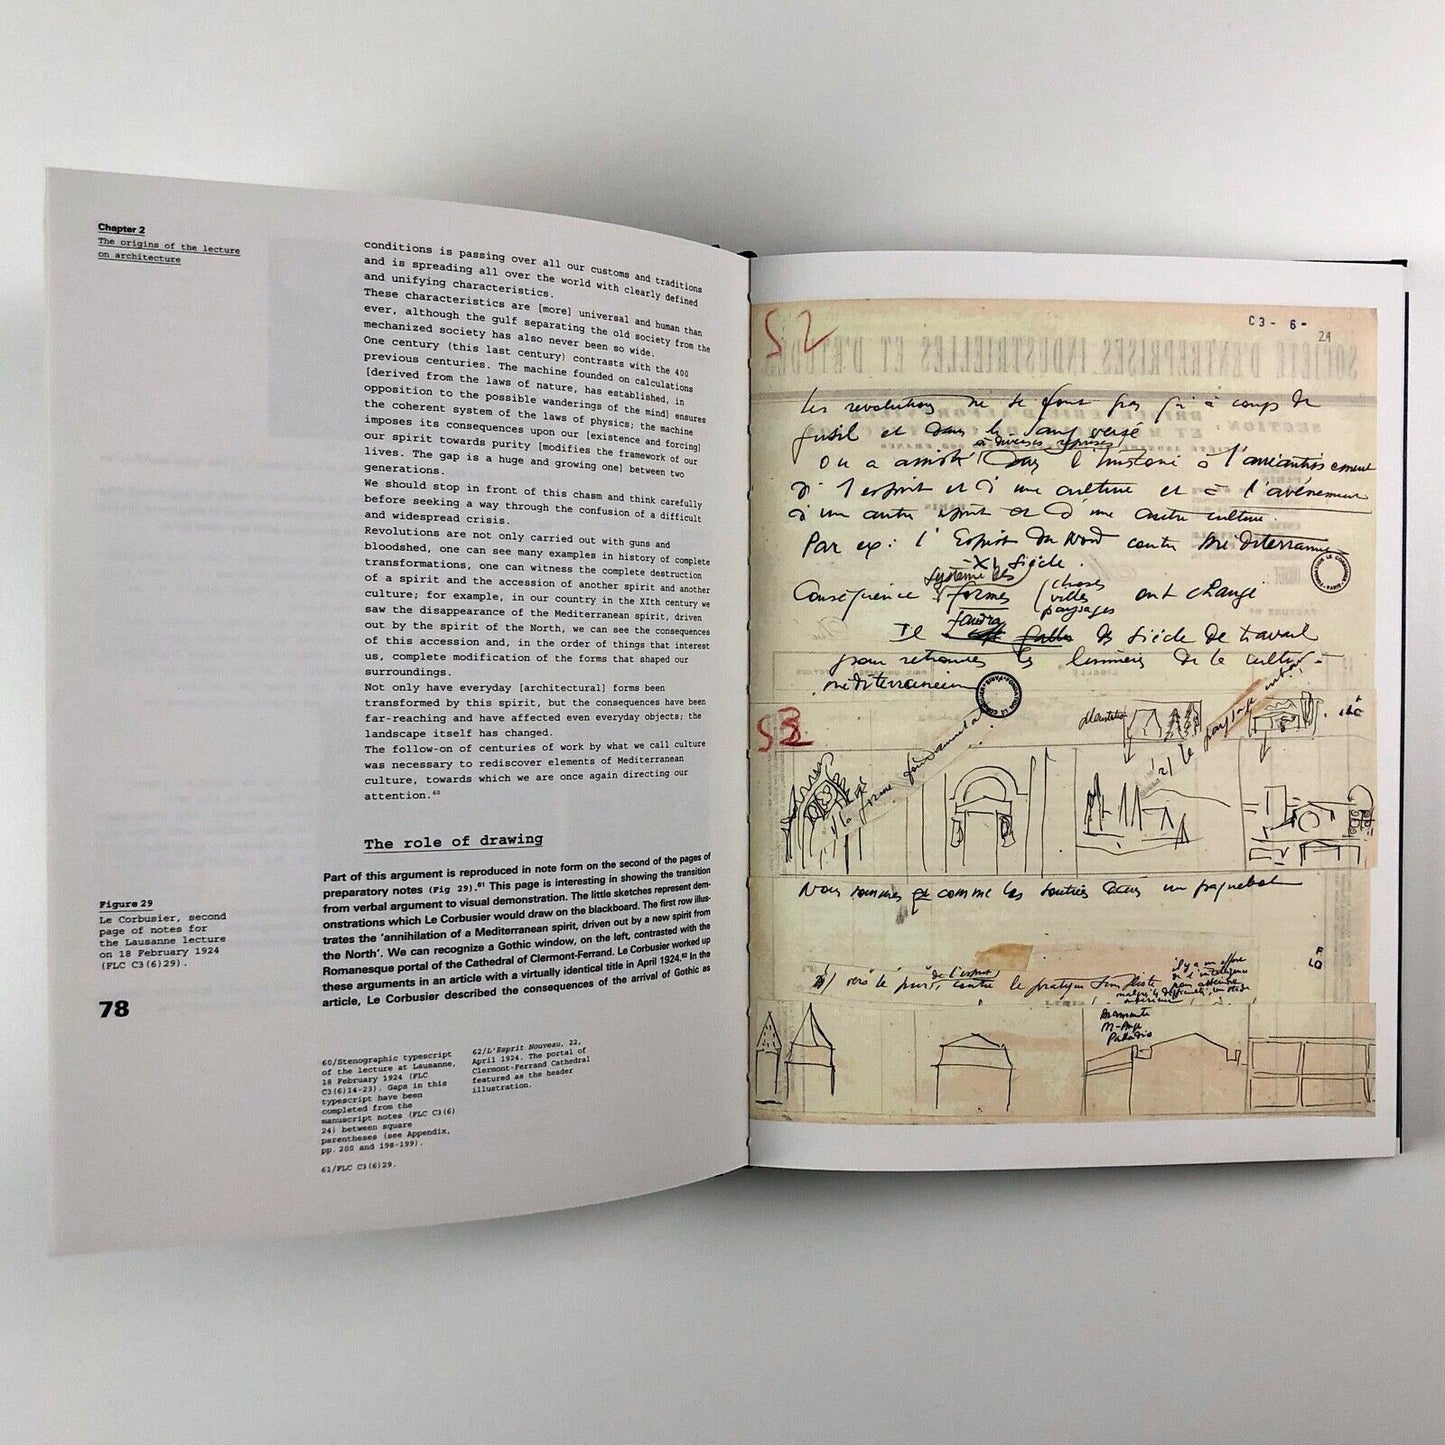 Chapter 2
The origins of the lecture
on architecture
conditions is passing over all our customs and traditions
and is spreading all over the world with clearly defined
and unifying characteristics.
These characteristics are [more] universal and human than
ever, although the gulf separating the old society from the
mechanized society has also never been so wide.
One century (this last century) contrasts with the 400
previous centuries. The machine founded on calculations
[derived from the laws of nature, has established, in
opposition to the possible wanderings of the mind] ensures
the coherent system of the laws of physics; the machine
imposes its consequences upon our [existence and forcing]
our spirit towards purity [modifies the framework of our
lives. The gap is a huge and growing one] between two
generations.
We should stop in front of this chasm and think carefully
before seeking a way through the confusion of a difficult
and widespread crisis.
Revolutions are not only carried out with guns and
bloodshed, one can see many examples in history of complete
transformations, one can witness the complete destruction
of a spirit and the accession of another spirit and another
culture; for example, in our country in the XIth century we
saw the disappearance of the Mediterranean spirit, driven
out by the spirit of the North, we can see the consequences
of this accession and, in the order of things that interest
us, complete modification of the forms that shaped our
surroundings.
Not only have everyday [architectural] forms been
transformed by this spirit, but the consequences have been
far-reaching and have affected even everyday objects; the
landscape itself has changed.
The follow-on of centuries of work by what we call culture
was necessary to rediscover elements of Mediterranean
culture, towards which we are once again directing our
attention.60
The role of drawing
Part of this argument is reproduced in note form on the second of the pages of
preparatory notes (Fig 29).61 This page is interesting in showing the transition
from verbal argument to visual demonstration. The little sketches represent dem-
onstrations which Le Corbusier would draw on the blackboard. The first row illus-
trates the 'annihilation of a Mediterranean spirit, driven out by a new spirit from
the North'. We can recognize a Gothic window, on the left, contrasted with the
Romanesque portal of the Cathedral of Clermont-Ferrand. Le Corbusier worked up
these arguments in an article with a virtually identical title in April 1924.62 In the
article, Le Corbusier described the consequences of the arrival of Gothic as
Figure 29
Le Corbusier, second
page of notes for
the Lausanne lecture
on 18 February 1924
(FLC C3(6)29).
78
60/Stenographic typescript
of the lecture at Lausanne,
18 February 1924 (FLC
C3(6)14-23). Gaps in this
typescript have been
completed from the
manuscript notes (FLC C3(6)
24) between square
parentheses (see Appendix,
pp. 200 and 198-199).
61/FLC C3(6)29.
62/L'Esprit Nouveau, 22,
April 1924. The portal of
Clermont-Ferrand Cathedral
featured as the header
illustration.
S2
C3-6-
24
SOCIÉTÉ D'ENTREPRISES INDUSTRIELLES ET D'ÉTUDES
Les revolutions ne se font pas qu'à coups de
fusil et dans le sang versé
à diverses reprises
On a assisté dans l'histoire à l'anéantissement
d'1 esprit et d'une culture et à l'avénement
d'un autre esprit et d'une autre culture.
Par ex: l'Esprit du Nord contre Méditerranée
XI Siècle.
système des
Conséquence formes choses villes paysages ont changé
faudra
Il des siècle de travail
pour retrouver les lumières de la culture
méditerranéenne
S3
1/ la forme fondamentale
2/ le paysage
Nous sommes comme les soutiers dans un paquebot
3/ vers le pur, de l'esprit contre le pratique simpliste
il y a un effort
de l'intelligence
pour atteindre
malgré les difficultés, un stade
supérieur
F
LO
Bramante
M-Ange
Palladio